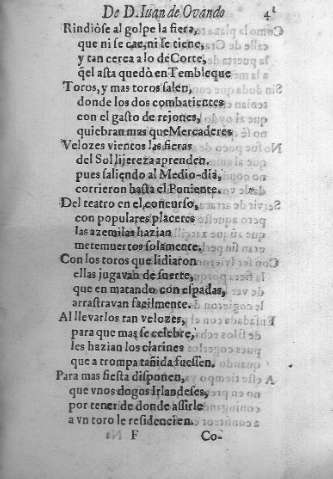 De D. Iuan de Ovando 41
Rindiòse al golpe la fiera,
que ni se cae, ni se tiene,
y tan cerca a lo de Corte,
q̃el asta quedò en Tembleque
Toros, y mas toros salen,
donde los dos combatientes
con el gasto de rejones,
quiebran mas que Mercaderes
Velozes vientos las fieras
del Sol lijereza aprenden.
pues saliendo al Medio-dia,
corrieron hasta el Poniente.
Del teatro en el concurso,
con populares placeres
las azemilas hazian
metemuertos solamente.
Con los toros que lidiaron
ellas jugavan de suerte,
que en matando con espadas,
arrastravan facilmente.
Al llevarlos tan velozes,
para que mas se celebre,
les hazian los clarines
que a trompa tañida fuessen.
Para mas fiesta disponen,
que vnos dogos Irlandeses,
por tener de donde assirle
a vn toro le residencien.
F Co-